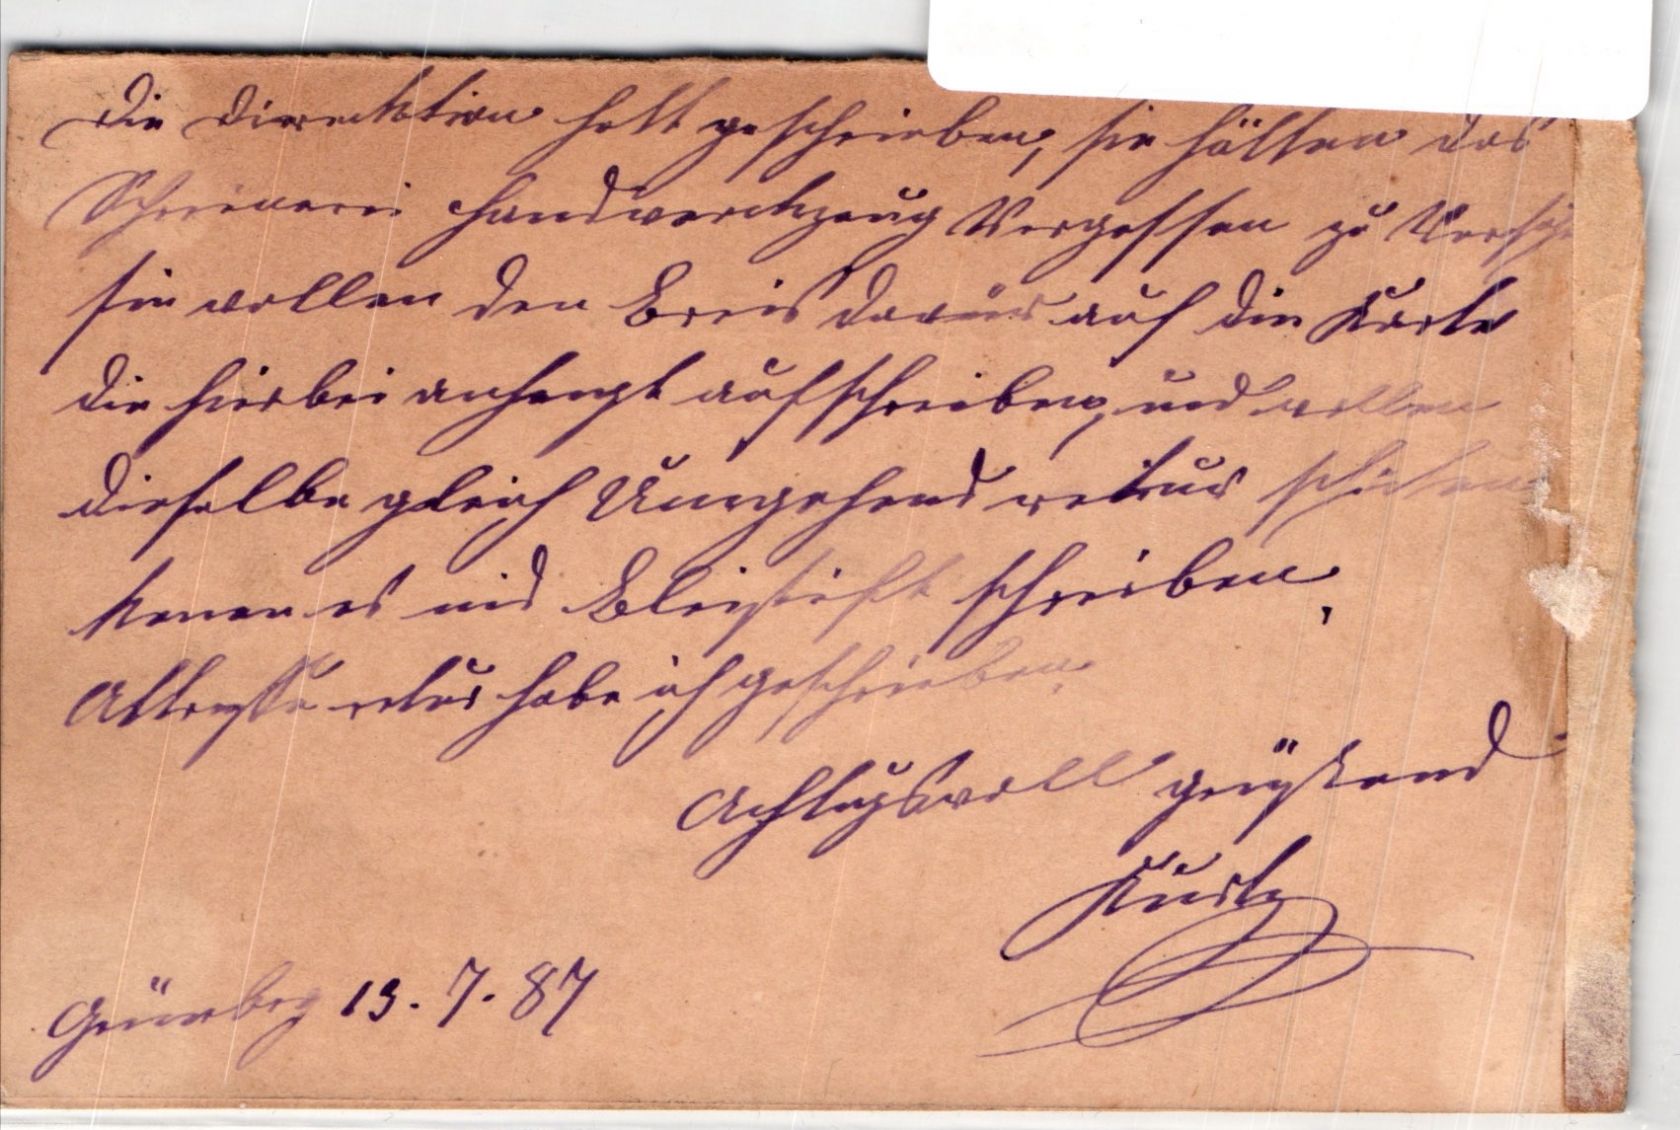 Die Direcktion hatt geschrieben, sie hätten das
Schreinerei Handwerckzeug Vergessen zu
sie wollen den Breis davür auf die Karte
die hierbei anhengt aufschreiben, und wollen
dieselbe gleich Umgehend retour schicken
kenen es mid Bleistift schreiben,
Attresse retur habe ich geschrieben.
Achtugsvoll grüstend
Kurtz
Grünberg 13. 7. 87